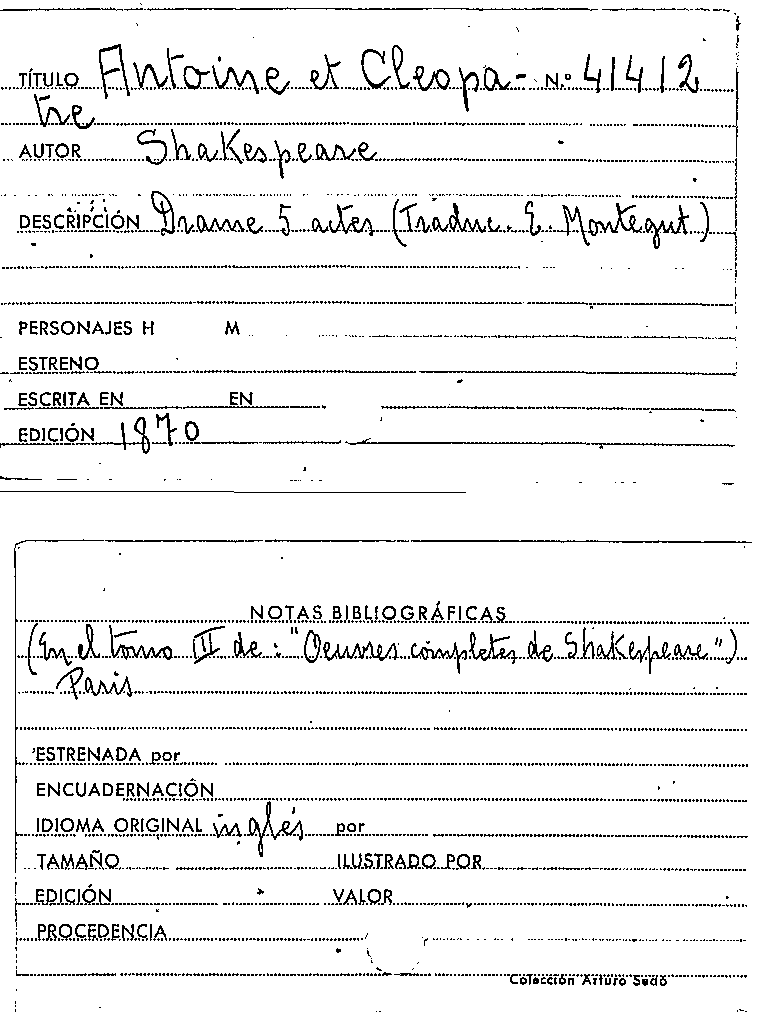 TÍTULO Antoine et Cleopa- N.º 41412
tre
AUTOR Shakespeare
DESCRIPCIÓN Drame 5 actes (Traduc. E. Montegut)
PERSONAJES H M
ESTRENO
ESCRITA EN EN
EDICIÓN 1870
NOTAS BIBLIOGRÁFICAS
(En el tomo II de: "Oeuvres completes de Shakespeare")
Paris
ESTRENADA por
ENCUADERNACIÓN
IDIOMA ORIGINAL inglés por
TAMAÑO ILUSTRADO POR
EDICIÓN VALOR
PROCEDENCIA
Colección Arturo Sedó